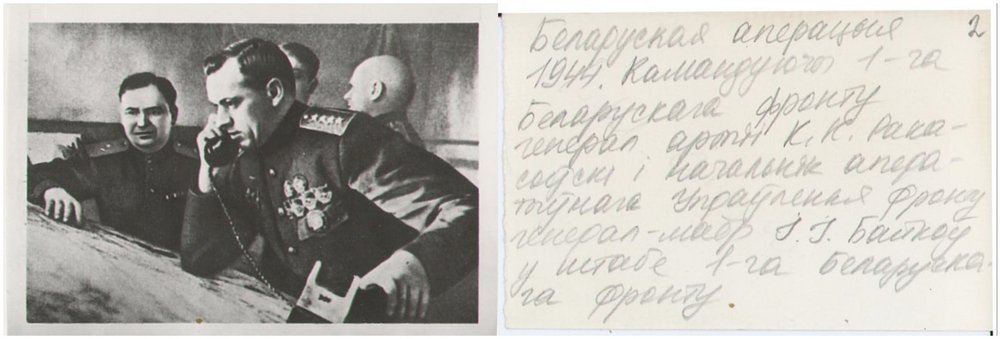 Беларуская аперацыя 2
1944. Камандуючы 1-га
Беларускага фронту
генерал арміі К. К. Рака-
соўскі і начальнік апера-
тыўнага Упраўлення фронту
генерал-маёр І. І. Бойкоў
у штабе 1-га Беларуска-
га фронту